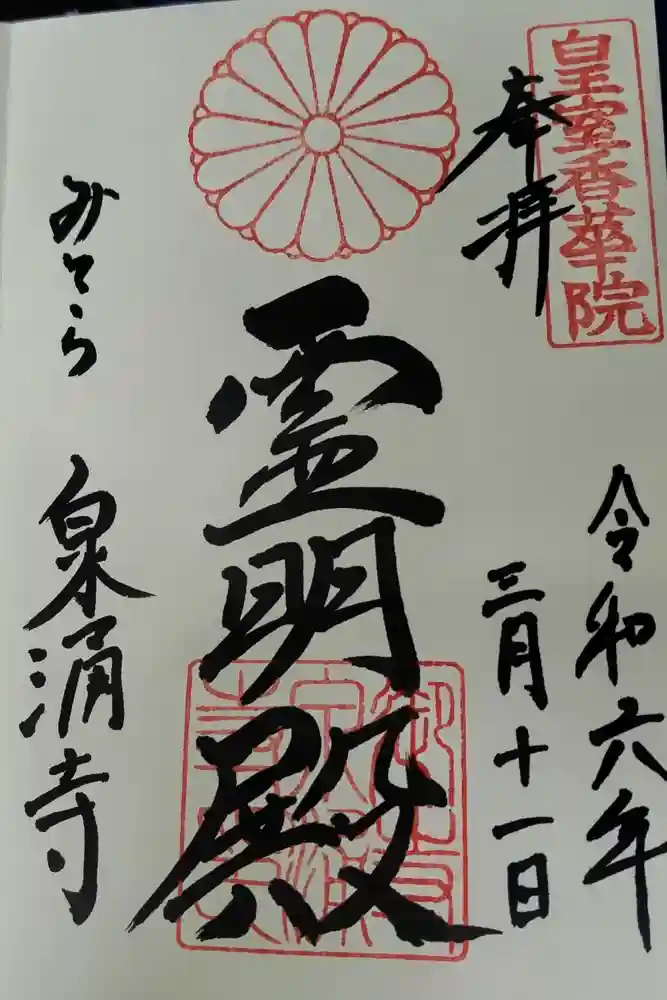 皇室香華院
奉拝
令和六年
三月十一日
霊明殿
みてら
泉涌寺